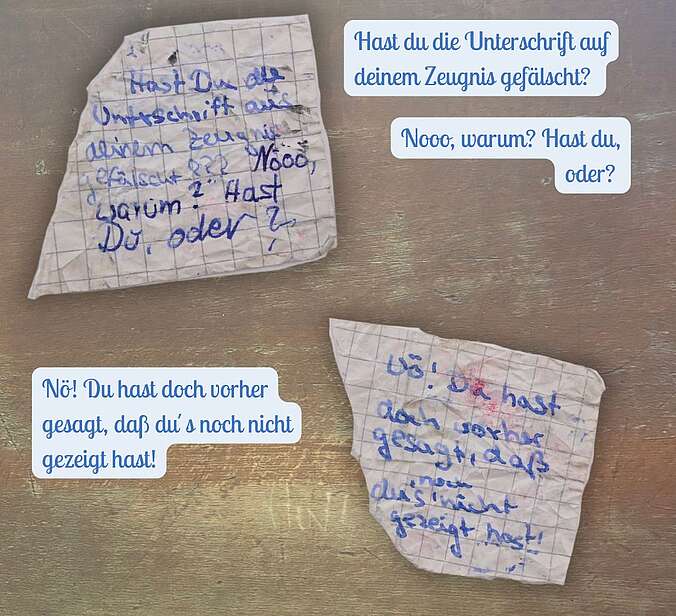 Hast Du die
Unterschrift aus
deinem Zeugnis
gefälscht??? Nööö,
warum? Hast
Du, oder?
Hast du die Unterschrift auf
deinem Zeugnis gefälscht?
Nooo, warum? Hast du,
oder?
Nö! Du hast doch vorher
gesagt, daß du's noch nicht
gezeigt hast!
Nö! Du hast
doch vorher
gesagt, daß
noch
du's nicht
gezeigt hast!